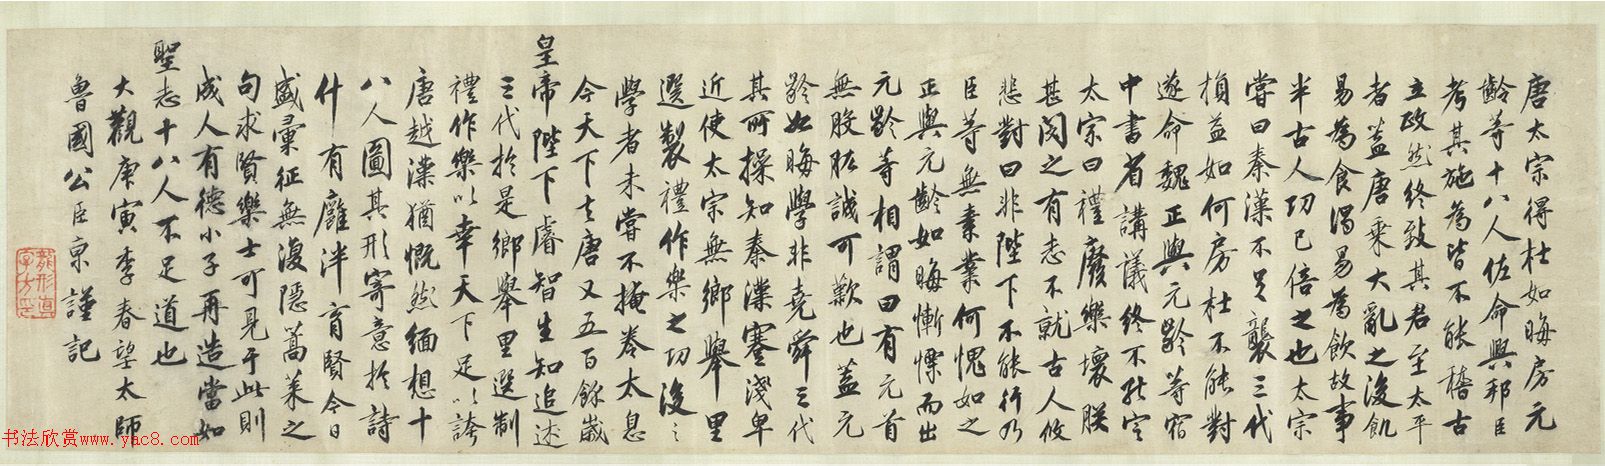 唐太宗得杜如晦房元
齡等十八人佐命興邦臣
考其施為皆不能稽古
立政然終致其君至太平
者蓋唐乘大亂之後飢
易為食渴易為飲故事
半古人功已倍之也太宗
嘗曰秦漢不足襲三代
損益如何房杜不能對
遂命魏正與元齡等宿
中書省講議終不能定
太宗曰禮廢樂壞朕
甚閔之有志不就古人攸
悲對曰非陛下不能行乃
臣等無素業何愧如之
正與元齡如晦慚慄而出
元齡等相謂曰有元首
無股肱誠可歎也蓋元
齡如晦學非堯舜三代
其所操知秦漢蹇淺卑
近使太宗無鄉舉里
選製禮作樂之功後之
學者未嘗不掩卷太息
今天下去唐又五百餘歲
皇帝陛下睿智生知追述
三代於是鄉舉里選制
禮作樂以幸天下足以誇
唐越漢猶慨然緬想十
八人圖其形寄意於詩
什有廱泮育賢今日
盛彙征無復隱蒿萊之
句求賢樂士可見于此則
成人有德小子再造當如
聖志十八人不足道也
大觀庚寅季春望太師
魯國公臣京謹記
书法欣赏www.yac8.com